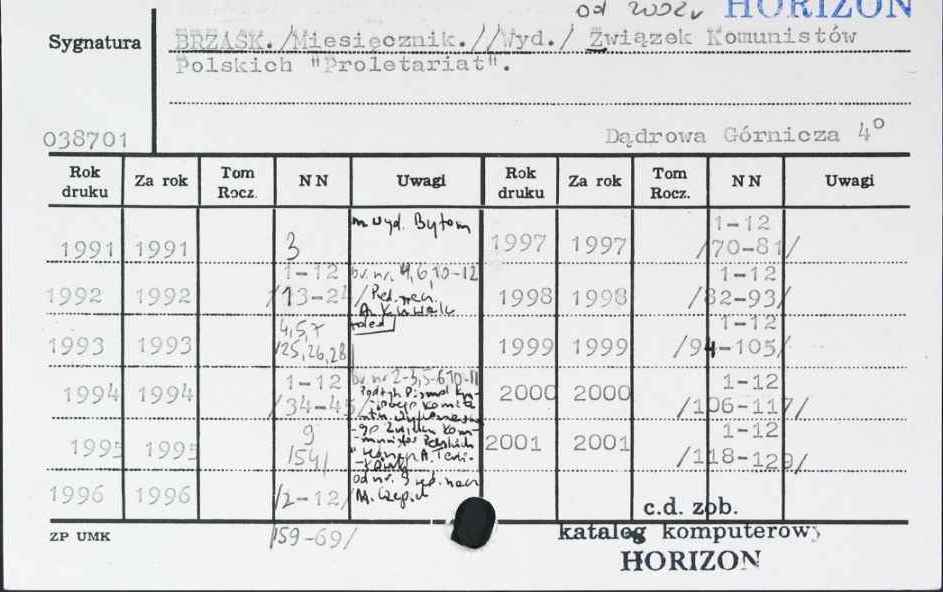 od 2002 HORIZON
Sygnatura
BRZASK./Miesięcznik.//Wyd./ Związek Komunistów
Polskich "Proletariat".
038701
Dądrowa Górnicza 4°
Rok druku Za rok Tom Rocz. NN Uwagi Rok druku Za rok Tom Rocz. NN Uwagi
1991 1991 3 m wyd. Bytom 1997 1997 1-12 /70-81/
1992 1992 1-12 /13-24/ br. nr. 4,6,10-12 Red. nacz. 1998 1998 1-12 /82-93/
1993 1993 4,5,7 /25,26,28/ 1999 1999 1-12 /94-105/
1994 1994 1-12 /34-45/ br. nr 2-3,5-6,10-11 2000 2000 1-12 /106-117/
1995 1995 9 /54/ 2001 2001 1-12 /118-129/
1996 1996 /2-12/ od nr. 9 red. nacz.
/59-69/
c.d. zob.
katalog komputerowy
HORIZON
ZP UMK